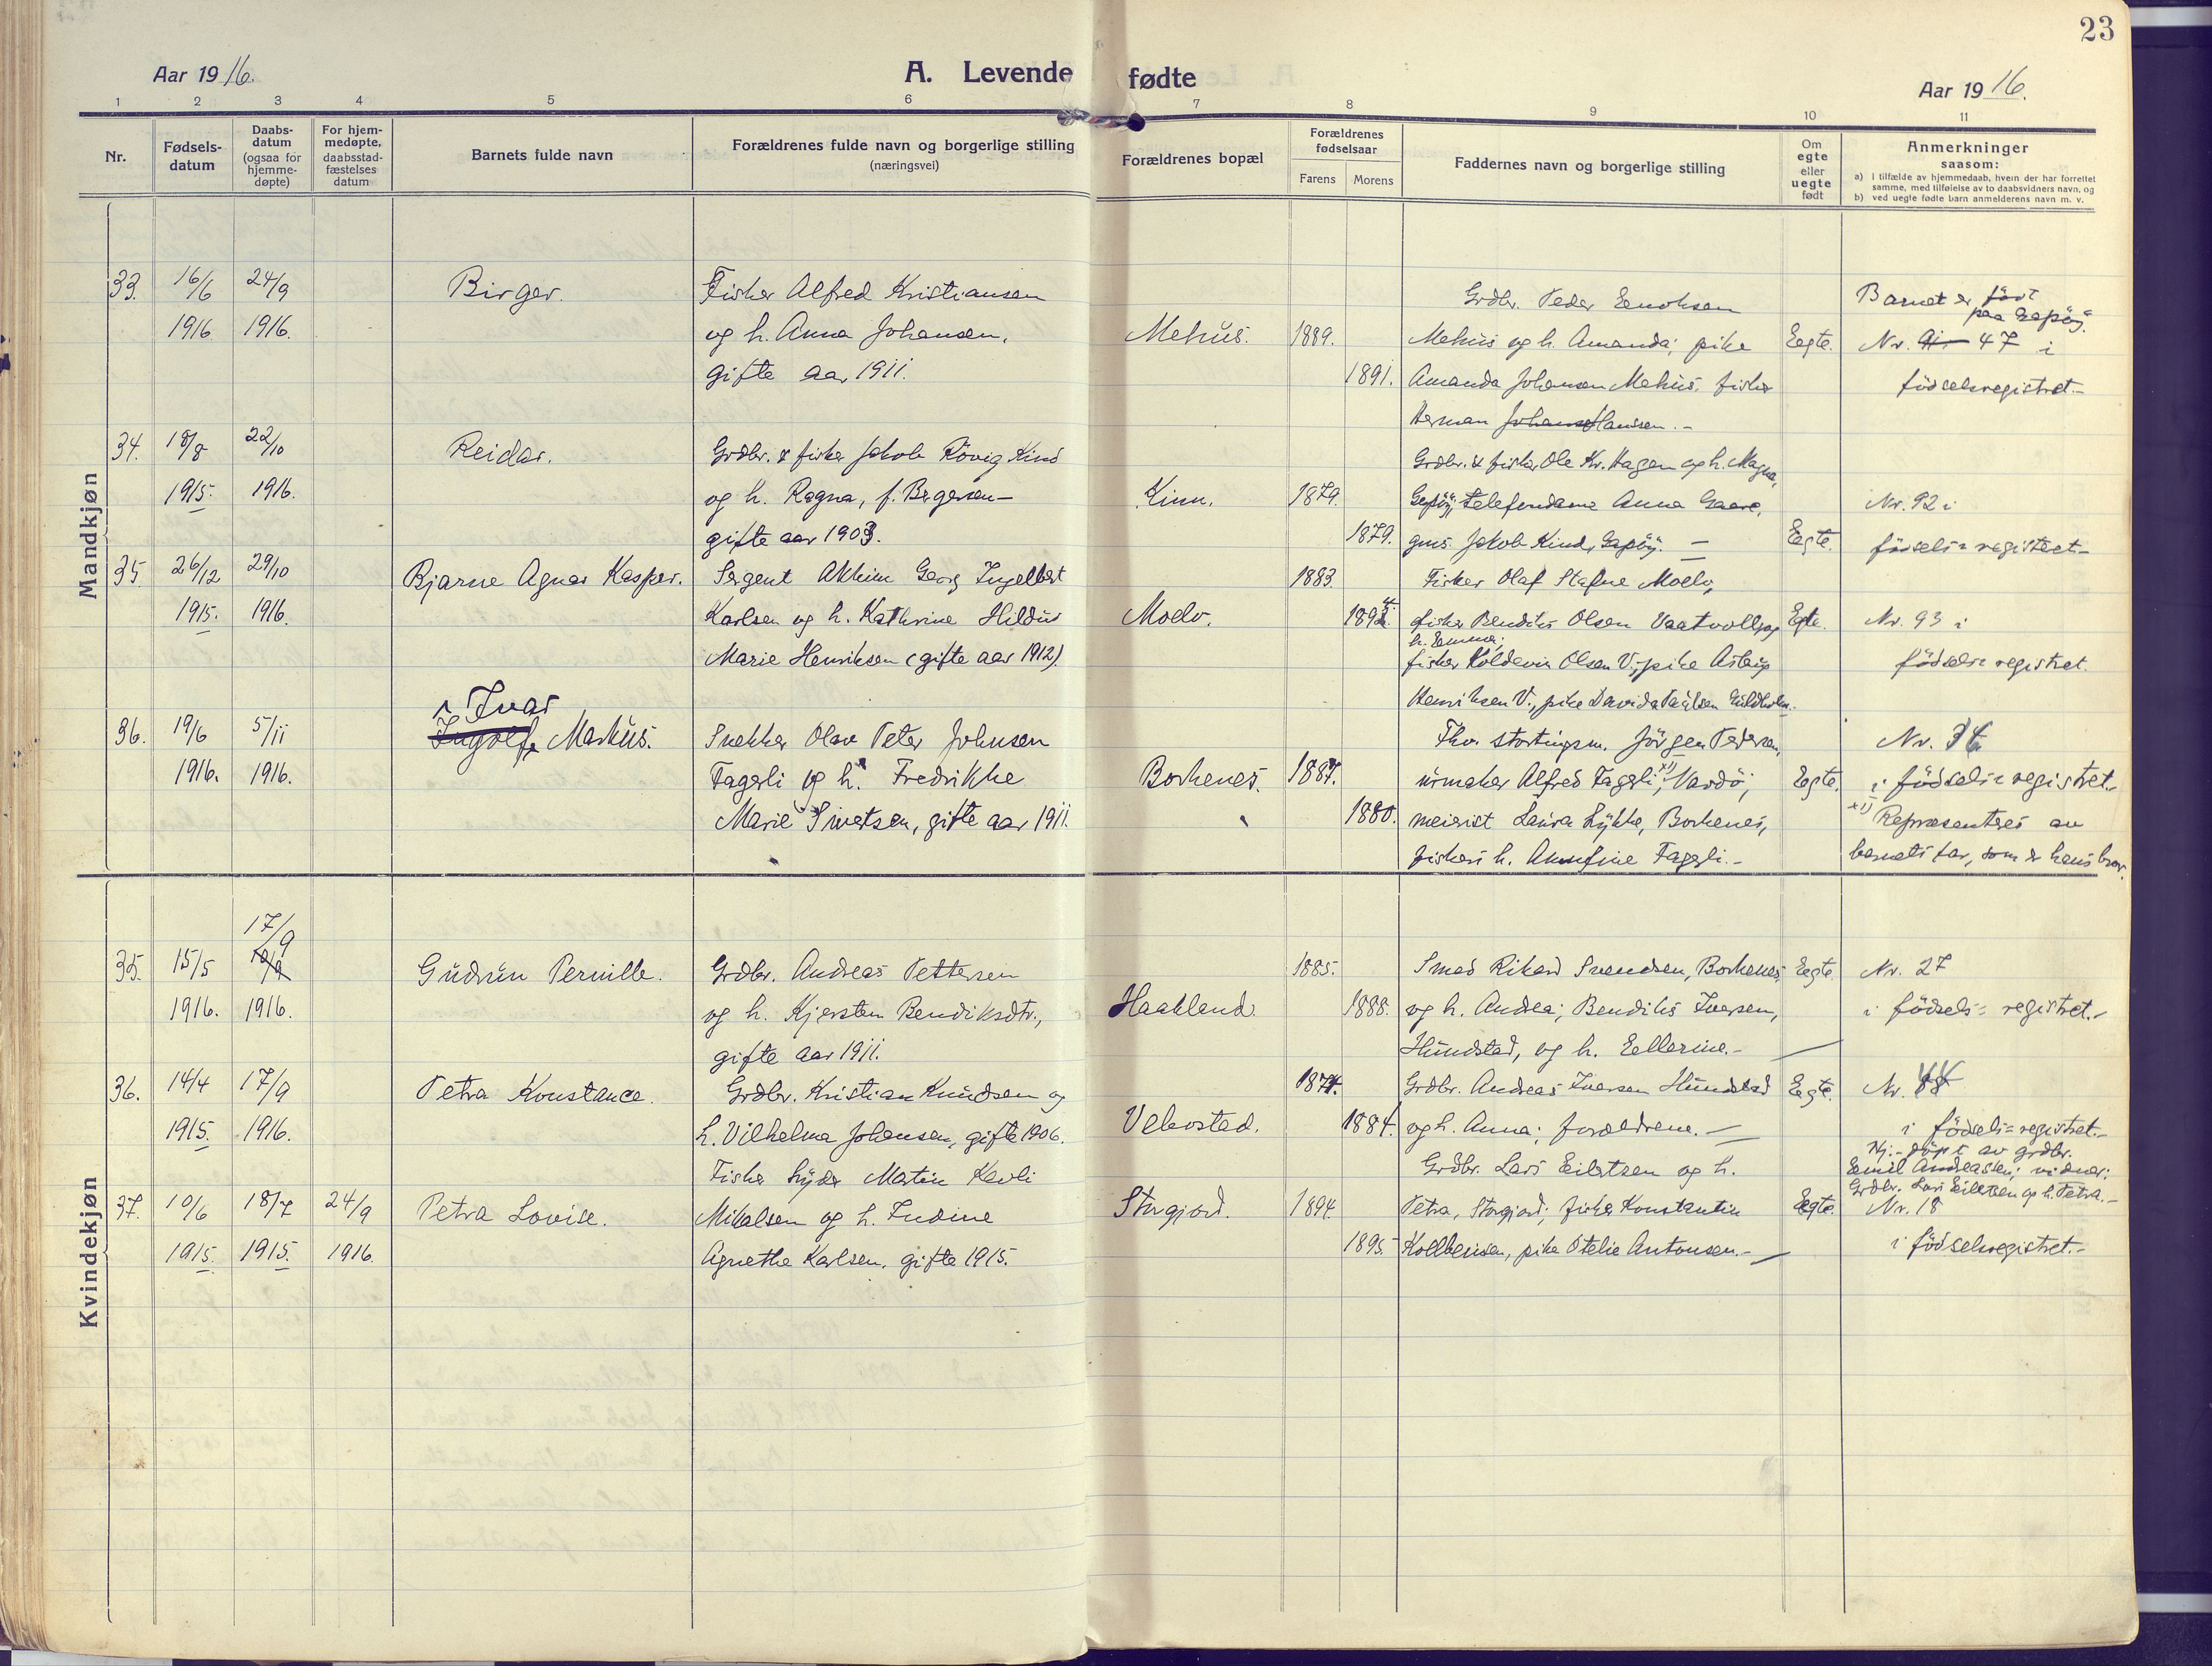 23
Aar 1916.
A. Levende fødte
Aar 1916.
1 2 3 4 5 6 7 8 9 10 11
Nr.
Fødsels-
datum
Daabs-
datum
(ogsaa for
hjemme-
døpte)
For hjem-
medøpte,
daabsstad-
fæstelses
datum
Barnets fulde navn
Forældrenes fulde navn og borgerlige stilling
(næringsvei)
Forældrenes bopæl
Forældrenes
fødselsaar
Farens Morens
Faddernes navn og borgerlige stilling
Om
egte
eller
uegte
født
Anmerkninger
saasom:
a) I tilfælde av hjemmedaab, hvem der har forrettet
samme, med tilføielse av to daabsvidners navn, og
b) ved uegte fødte barn anmelderens navn m. v.
Mandkjøn
33. 16/6 24/9 Birger.
1916 1916.
Fisker Alfred Kristiansen
og h. Anna Johansen,
gifte aar 1911.
Mehus. 1889.
1891.
Grdbr. Peder Enoksen
Mehus og h. Amanda; pike
Amanda Johansen Mehus, fisker
Herman Johans Hansen.-
Egte.
Barnet er født
paa Gapøy.
Nr. 47 i
fødselsregistret.-
34. 18/8 22/10 Reidar.
1915. 1916.
Grdbr. & fisker Jakob Røvig Kind
og h. Ragna, f. Bergersen-
gifte aar 1903.
Kinn. 1879.
1879.
Grdbr. & fisker Ole Kr. Hagen og h. Magna,
Gapøy; telefondame Anna Gaare,
gms. Jakob Kind, Gapøy. -
Egte.
Nr. 92 i
fødsels=registret-
35 26/12 29/10 Bjarne Agnar Kasper.
1915. 1916.
Sergent Akhim Georg Ingelbert
Karlsen og h. Kathrine Hildur
Marie Henriksen (gifte aar 1912)
Moelv. 1883.
1894.
Fisker Olaf Stefne Moelv,
fisker Bendiks Olsen Vaatvoll og
h. Emma;
fisker Koldevin Olsen V., pike Aslaug
Henriksen V., pike Davida Paulsen Guldholm.-
Egte.
Nr. 93 i
fødsels=registret.
36. 19/6 5/11 Ivar
Ingolf Markus.
1916. 1916.
Snekker Olav Peter Johnsen
Fagerli og h. Fredrikke
Marie Sivertsen, gifte aar 1911.
Borkenes. 1887.
1880.
Fhv. stortingsm. Jørgen Pedersen,
urmaker Alfred Fagerli x1), Vardø;
meierist Laura Lykke, Borkenes,
fiskers h. Annfine Fagerli.-
Egte.
Nr. 36
i fødsels=registret.-
x1) Repræsenteres av
barnets far, som er hans bror.
Kvindekjøn
17/9
35. 15/5 10/9 Gudrun Pernille.
1916. 1916.
Grdbr. Andreas Pettersen
og h. Kjersten Bendiksdtr.,
gifte aar 1911.
Haakland. 1885.
1888.
Smed Rikard Svendsen, Borkenes
og h. Andrea; Bendiks Iversen,
Hundstad, og h. Ellerine.-
Egte.
Nr. 27
i fødsels=registret.-
36. 14/4 17/9 Petra Konstance.
1915. 1916.
Grdbr. Kristian Knudsen og
h. Vilhelma Johansen, gifte 1906.
Vebostad. 1874.
1884.
Grdbr. Andreas Iversen Hundstad
og h. Anna; forældrene.-
Egte.
Nr. 44
i fødsels=registret.-
37. 10/6 18/7 24/9 Petra Lovise.
1915. 1915. 1916.
Fisker Lyder Martin Kavli
Mikalsen og h. Indine
Agnethe Karlsen, gifte 1915.
Storjord. 1894.
1895.
Grdbr. Lars Eilertsen og h.
Petra, Storjord; fisker Konstantin
Kolbensen, pike Otelie Antonsen.-
Egte.
Hj.-døpt av grdbr.
Emil Andreassen; vidner:
Grdbr. Lars Eilertsen og h. Petra.-
Nr. 18
i fødselsregistret.-